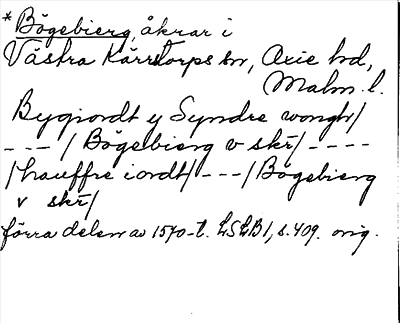 * Bögebierg, åkrar i
Västra Kärrstorps sn, Oxie hd,
Malm. l.
Bygiordt y Syndre wongh/
- - - / Bögebierg v skr/ - - - -
/hauffre iordt/ - - -/ Bögebierg
v skr/
förra delen av 1570-t. LSLB1, s. 409. orig.